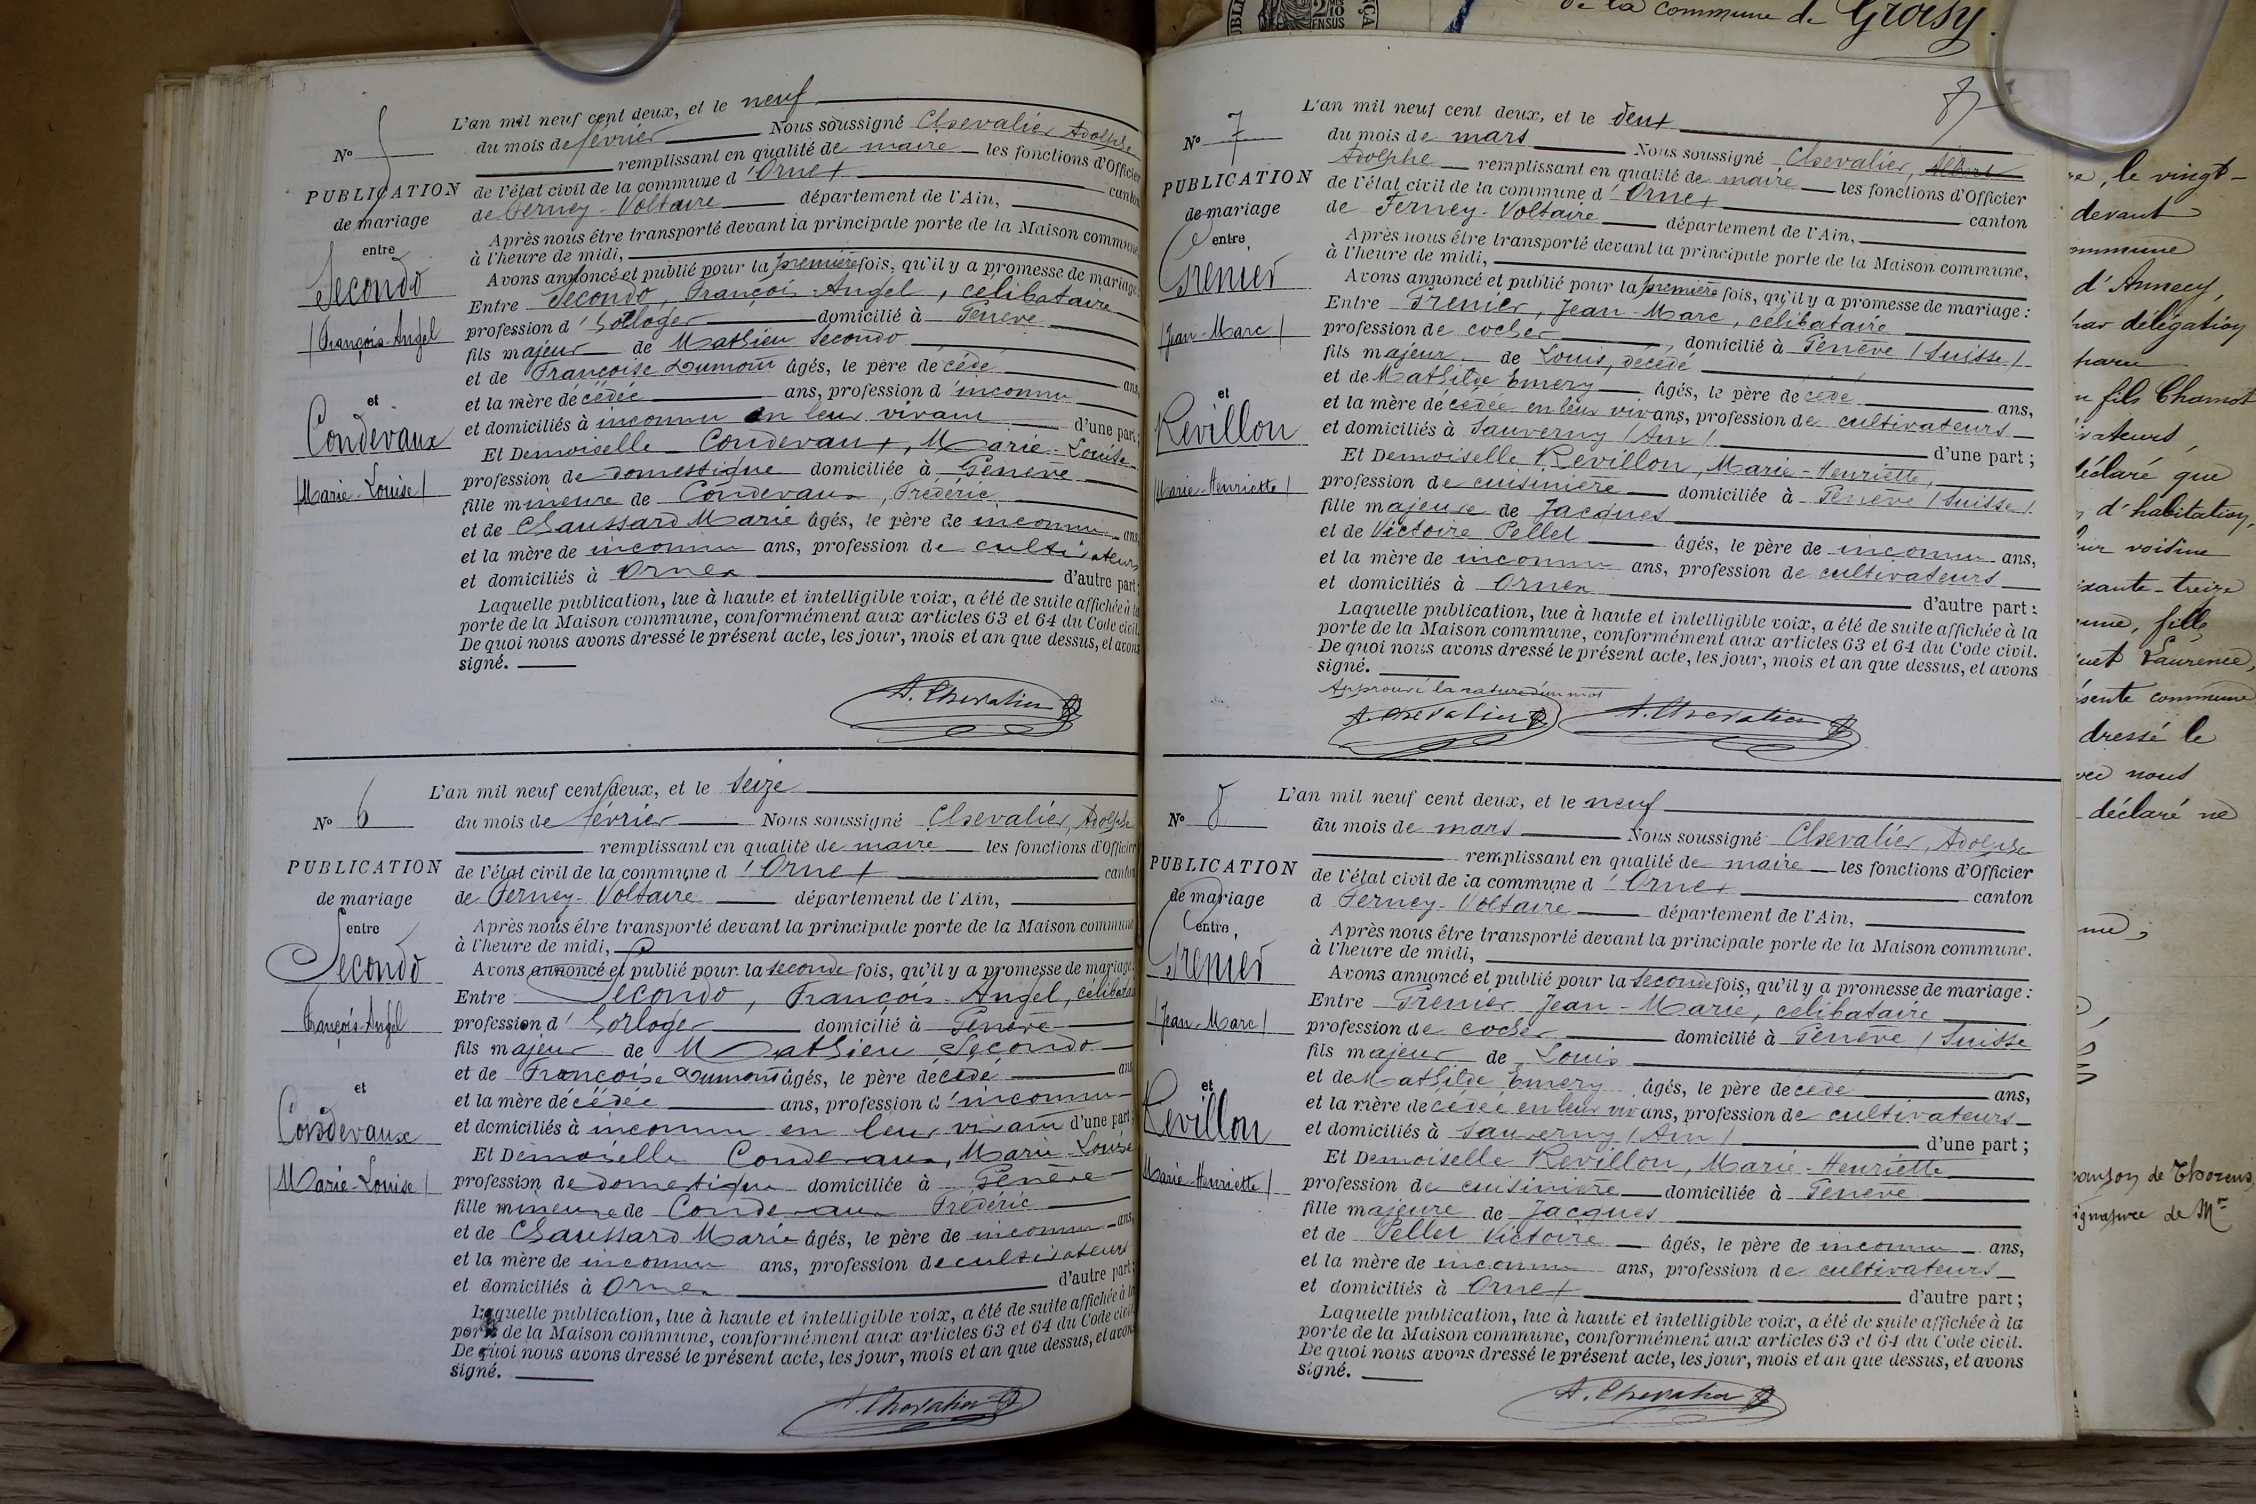 L'an mil neuf cent deux, et le neuf
du mois de février Nous soussigné Chevalier Adolphe
remplissant en qualité de maire les fonctions d'Officier
de l'état civil de la commune d'Ornex canton
de Ferney-Voltaire département de l'Ain,
Après nous être transporté devant la principale porte de la Maison commune
à l'heure de midi,
Avons annoncé et publié pour la première fois, qu'il y a promesse de mariage:
Entre Secondo, François-Angel, célibataire
profession d'horloger domicilié à Genève
fils majeur de Mathieu Secondo
et de Françoise Dumont âgés, le père de cédé ans,
et la mère décédée ans, profession d'inconnu
et domiciliés à inconnu en leur vivant d'une part;
Et Demoiselle Condevaux, Marie-Louise
profession de domestique domiciliée à Genève
fille mineure de Condevaux, Frédéric
et de Chaussard Marie âgés, le père de inconnu ans,
et la mère de inconnu ans, profession de cultivateurs
et domiciliés à Ornex d'autre part;
Laquelle publication, lue à haute et intelligible voix, a été de suite affichée à la
porte de la Maison commune, conformément aux articles 63 et 64 du Code civil.
De quoi nous avons dressé le présent acte, les jour, mois et an que dessus, et avons
signé.
A. Chevalier
No 5
PUBLICATION
de mariage
entre
Secondo
/François-Angel
et
Condevaux
/Marie-Louise/
L'an mil neuf cent deux, et le seize
du mois de février Nous soussigné Chevalier, Adolphe
remplissant en qualité de maire les fonctions d'Officier
de l'état civil de la commune d'Ornex canton
de Ferney-Voltaire département de l'Ain,
Après nous être transporté devant la principale porte de la Maison commune
à l'heure de midi,
Avons annoncé et publié pour la seconde fois, qu'il y a promesse de mariage:
Entre Secondo, François-Angel, célibataire
profession d'horloger domicilié à Genève
fils majeur de Mathieu Secondo
et de Françoise Dumont âgés, le père décédé ans
et la mère décédée ans, profession d'inconnu
et domiciliés à inconnu en leur vivant d'une part;
Et Demoiselle Condevaux, Marie-Louise
profession de domestique domiciliée à Genève
fille mineure de Condevaux Frédéric
et de Chaussard Marie âgés, le père de inconnu ans,
et la mère de inconnu ans, profession de cultivateurs
et domiciliés à Ornex d'autre part;
Laquelle publication, lue à haute et intelligible voix, a été de suite affichée à la
porte de la Maison commune, conformément aux articles 63 et 64 du Code civil.
De quoi nous avons dressé le présent acte, les jour, mois et an que dessus, et avons
signé.
A. Chevalier
No 6
PUBLICATION
de mariage
entre
Secondo
François-Angel
et
Condevaux
/Marie-Louise/
L'an mil neuf cent deux, et le deux
du mois de mars Nous soussigné Chevalier, Albert
Adolphe remplissant en qualité de maire les fonctions d'Officier
de l'état civil de la commune d'Ornex canton
de Ferney-Voltaire département de l'Ain,
Après nous être transporté devant la principale porte de la Maison commune,
à l'heure de midi,
Avons annoncé et publié pour la première fois, qu'il y a promesse de mariage:
Entre Grenier, Jean-Marc, célibataire
profession de cocher, domicilié à Genève /Suisse/
fils majeur de Louis, décédé
et de Mathilde Emery âgés, le père décédé ans,
et la mère décédée en leur viv ans, profession de cultivateurs
et domiciliés à Sauverny /Ain/ d'une part;
Et Demoiselle Revillon, Marie-Henriette,
profession de cuisinière domiciliée à Genève /Suisse/
fille majeure de Jacques
et de Victoire Pellet âgés, le père de inconnu ans,
et la mère de inconnu ans, profession de cultivateurs
et domiciliés à Ornex d'autre part:
Laquelle publication, lue à haute et intelligible voix, a été de suite affichée à la
porte de la Maison commune, conformément aux articles 63 et 64 du Code civil.
De quoi nous avons dressé le présent acte, les jour, mois et an que dessus, et avons
signé.
Approuvé la rature d'un mot
A. Chevalier A. Chevalier
No 7
PUBLICATION
de mariage
entre
Grenier
/Jean-Marc/
et
Revillon
/Marie-Henriette/
L'an mil neuf cent deux, et le neuf
du mois de mars Nous soussigné Chevalier, Adolphe
remplissant en qualité de maire les fonctions d'Officier
de l'état civil de la commune d'Ornex canton
d Ferney-Voltaire département de l'Ain,
Après nous être transporté devant la principale porte de la Maison commune.
à l'heure de midi,
Avons annoncé et publié pour la seconde fois, qu'il y a promesse de mariage:
Entre Grenier Jean-Marie, célibataire
profession de cocher domicilié à Genève /Suisse
fils majeur de Louis
et de Mathilde Emery âgés, le père décédé ans,
et la mère décédée en leur viv ans, profession de cultivateurs
et domiciliés à Sauverny /Ain/ d'une part;
Et Demoiselle Revillon, Marie-Henriette
profession de cuisinière domiciliée à Genève
fille majeure de Jacques
et de Pellet Victoire âgés, le père de inconnu ans,
et la mère de inconnu ans, profession de cultivateurs
et domiciliés à Ornex d'autre part;
Laquelle publication, lue à haute et intelligible voix, a été de suite affichée à la
porte de la Maison commune, conformément aux articles 63 et 64 du Code civil.
De quoi nous avons dressé le présent acte, les jour, mois et an que dessus, et avons
signé.
A. Chevalier
No 8
PUBLICATION
de mariage
entre,
Grenier
/Jean-Marc/
et
Revillon
Marie-Henriette/
de la commune de Groisy.
le vingt-
devant
d'Annecy,
par délégation
fils Chamot
déclaré que
d'habitation,
voisine
fille
Laurence,
commune
dressé le
nous
déclaré ne
de Thorens,
de Mr